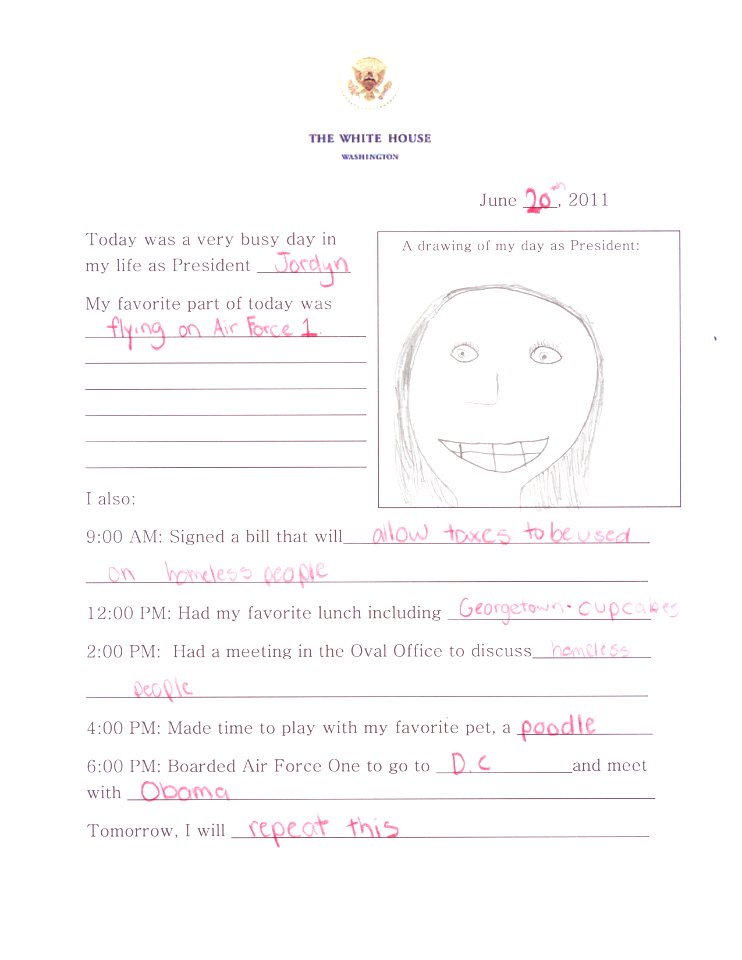 THE WHITE HOUSE
WASHINGTON
June 20th, 2011
Today was a very busy day in
my life as President Jordyn
My favorite part of today was
flying on Air Force 1.
A drawing of my day as President:
I also:
9:00 AM: Signed a bill that will allow taxes to be used
on homeless people
12:00 PM: Had my favorite lunch including Georgetown cupcakes
2:00 PM: Had a meeting in the Oval Office to discuss homeless
people
4:00 PM: Made time to play with my favorite pet, a poodle
6:00 PM: Boarded Air Force One to go to D.C and meet
with Obama
Tomorrow, I will repeat this